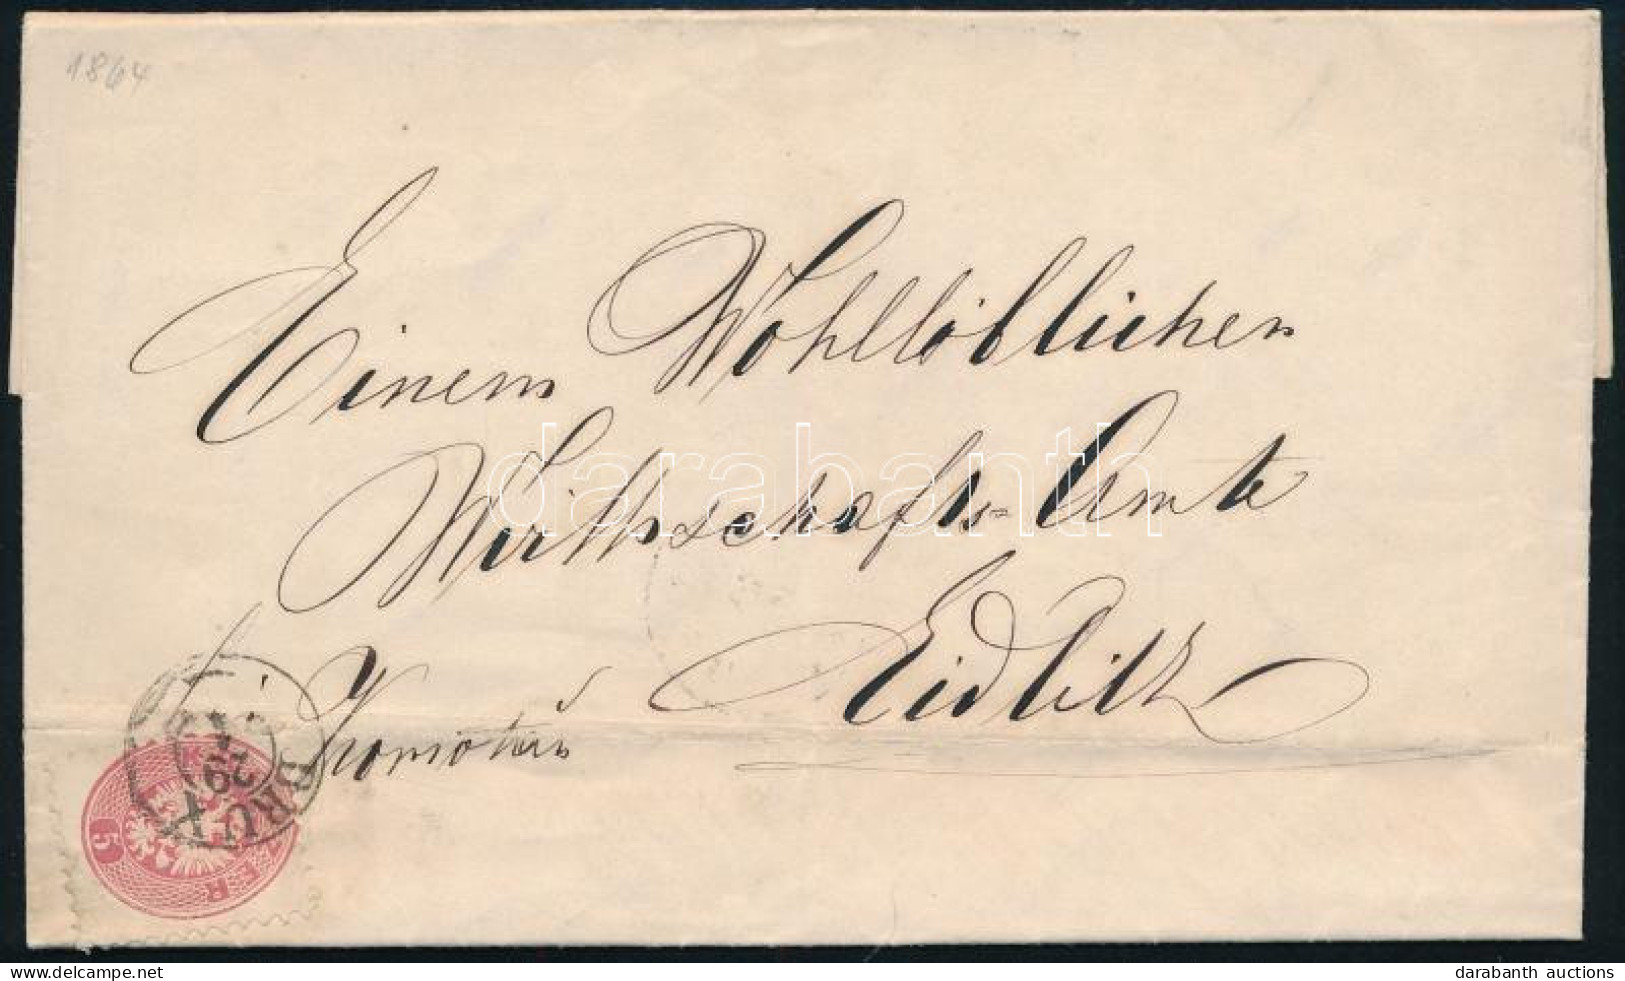 1864
Einem Wohllöblichen
Wirthschafts=Amte
Eidlitz
Komotau
BRUX
29
5
darabanth
delcampe.net
darabanth auctions